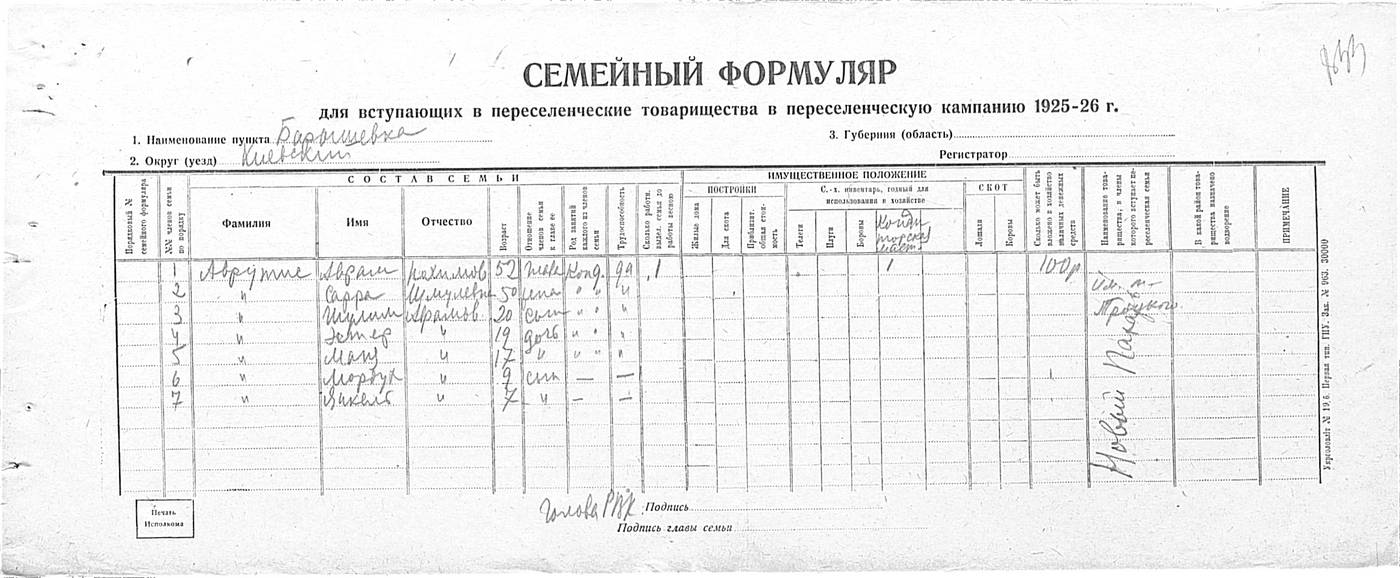 СЕМЕЙНЫЙ ФОРМУЛЯР
для вступающих в переселенческие товарищества в переселенческую кампанию 1925-26 г.
1. Наименование пункта Барышевка
3. Губерния (область)
2. Округ (уезд) Киевский
Регистратор
СОСТАВ СЕМЬИ
ИМУЩЕСТВЕННОЕ ПОЛОЖЕНИЕ
Порядковый № семейного формуляра
№№ членов семьи по порядку
Фамилия
Имя
Отчество
Возраст
Отношение членов семьи к главе ее
Род занятий каждого из членов семьи
Трудоспособность
Сколько работн. выдел. семья до работы весною
ПОСТРОЙКИ
Жилые дома
Для скота
Приблизит. общая стоимость
С.-х. инвентарь, годный для использования в хозяйстве
Телеги
Плуги
Бороны
СКОТ
Лошади
Коровы
Сколько может быть вложено в хозяйство наличных денежных средств
Наименование товарищества, в члены которого вступает переселенческая семья
В какой район товарищества назначено водворение
ПРИМЕЧАНИЕ
1 Аврутис Аврам 52 Конд. 1 1 100р
2 " Сарра Шмулевна 50 " " "
3 " Шулим Абрамов 20 сын " " "
4 " Эстер " 19 дочь " " "
5 " " 17 " " " "
6 " Мордух " 9 сын — —
7 " Янкель " 7 " — —
Им. Троцкого
Новый
Печать
Исполкома
Голова РВК Подпись
Подпись главы семьи